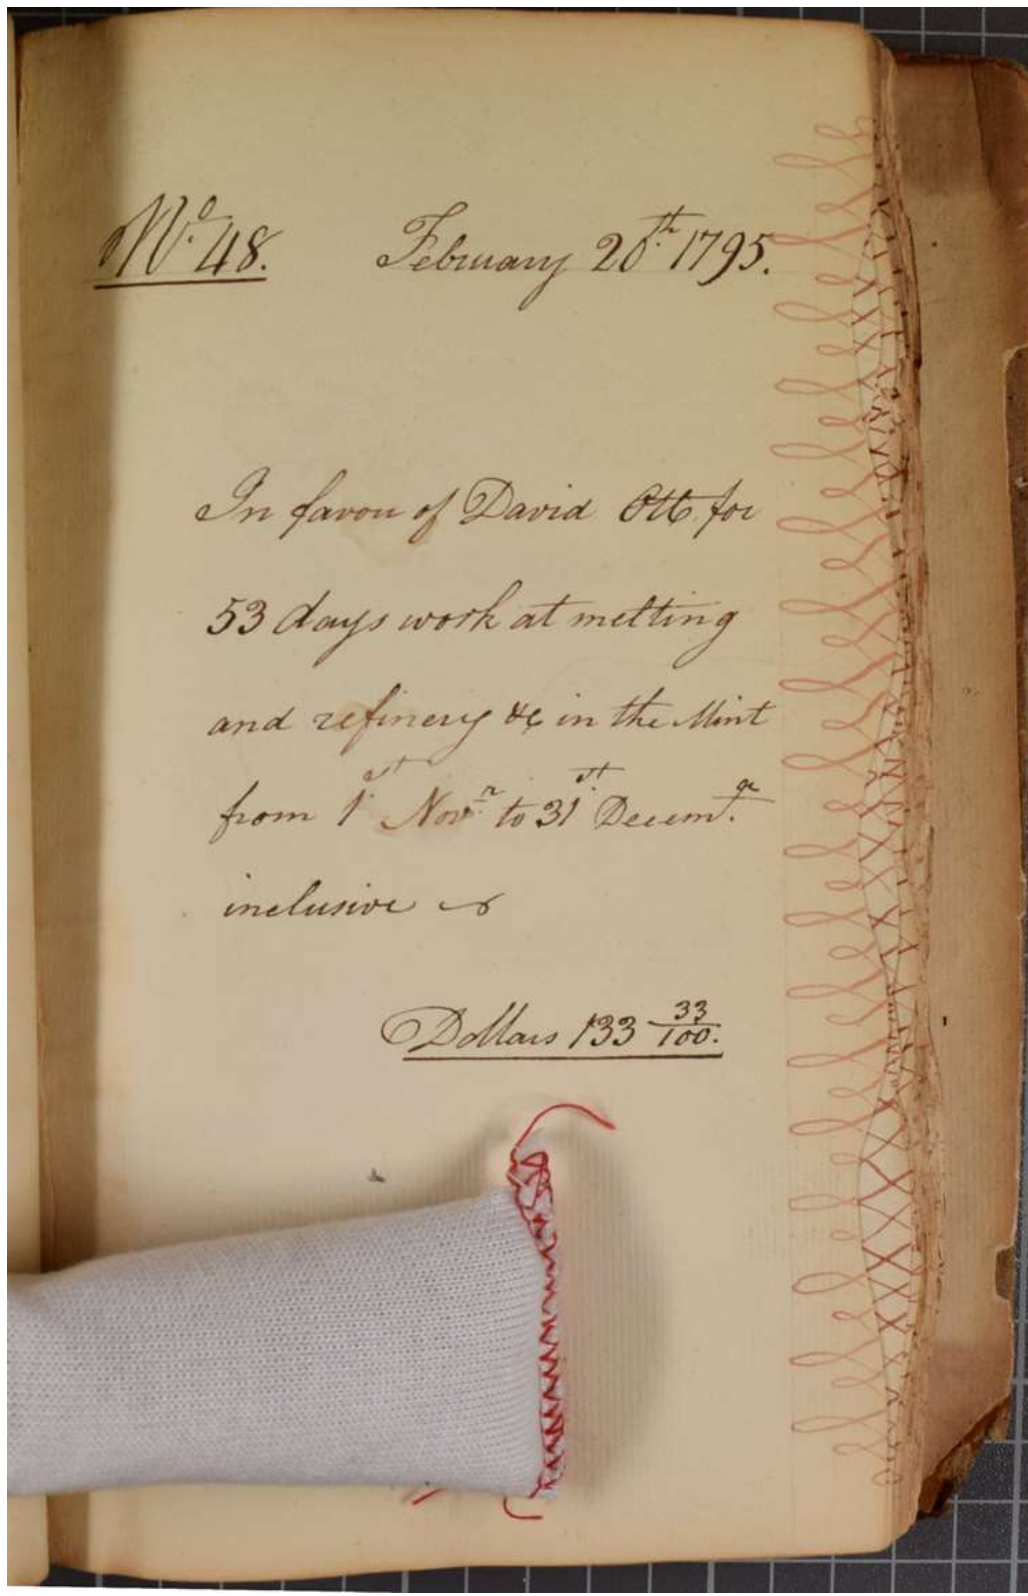 No. 48. February 20th 1795.
In favou of David Ott for
53 days work at melting
and refinery &c in the Mint
from 1st Novr to 31st Decemr
inclusive
Dollars 133 33/100.